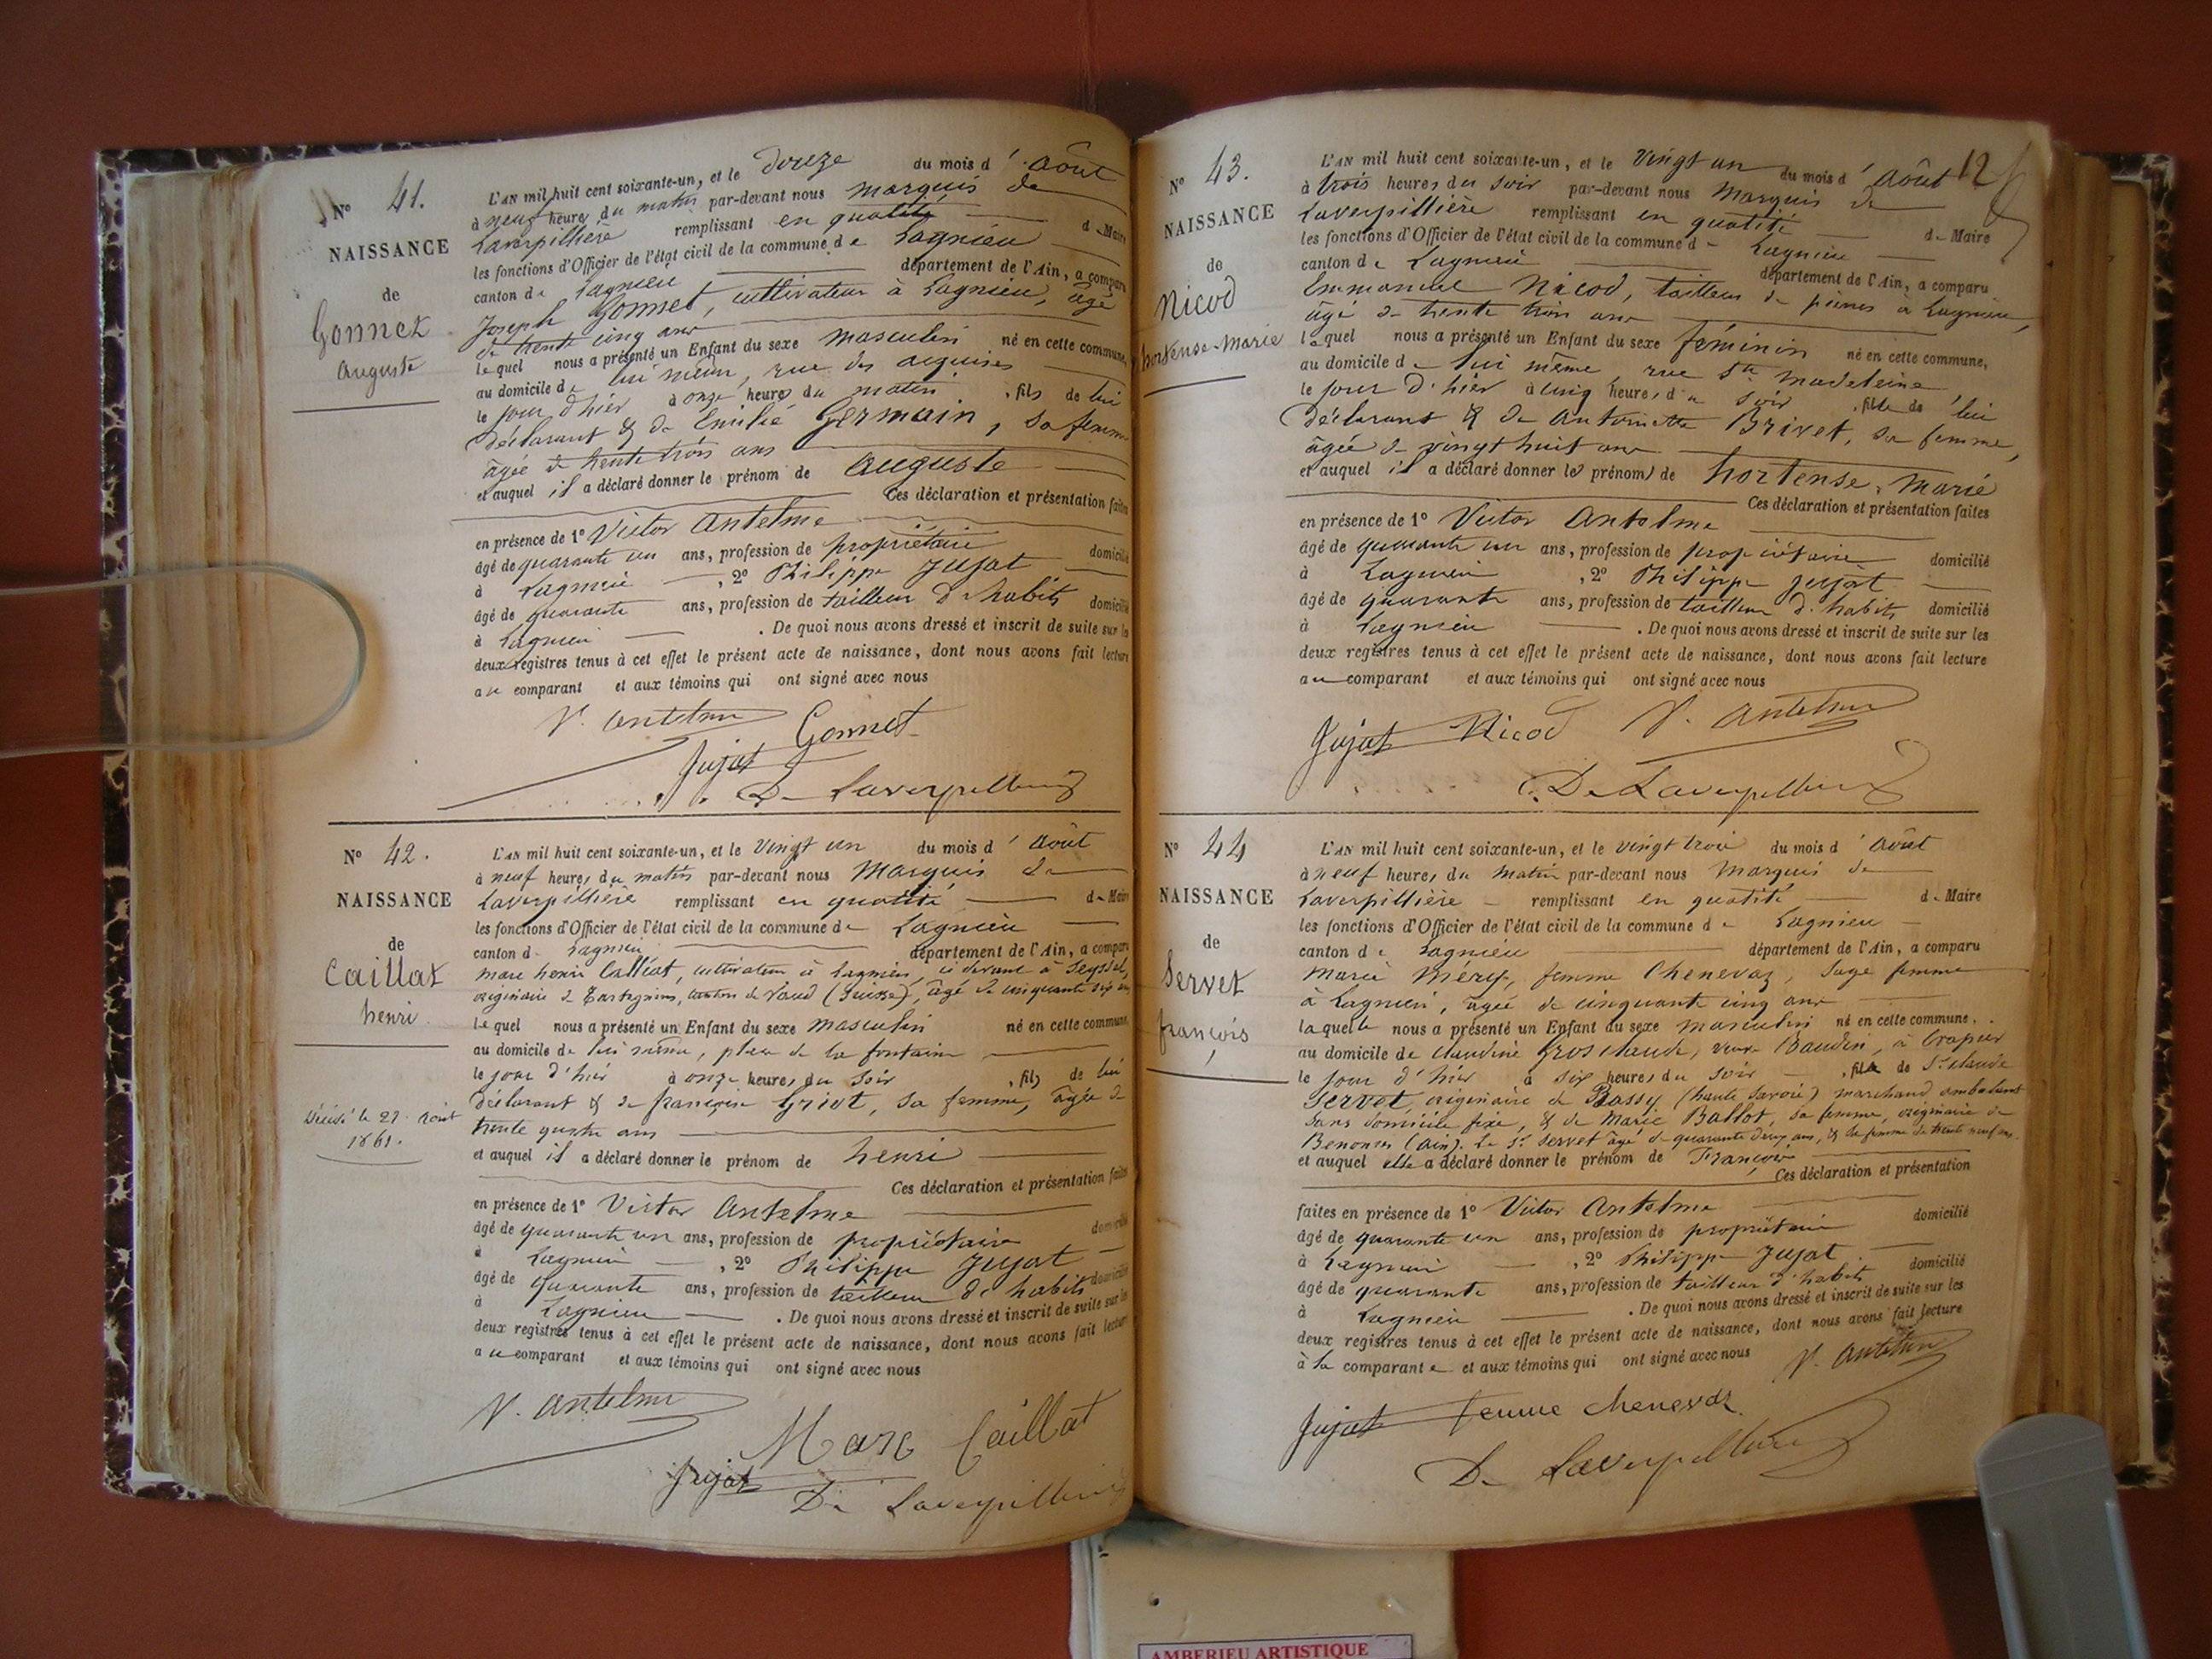 N° 41.
NAISSANCE
de
Gonnet
Auguste
L'AN mil huit cent soixante-un, et le douze du mois d'Août
à neuf heures du matin par-devant nous Marquis de
Laverpillière remplissant en qualité de Maire
les fonctions d'Officier de l'état civil de la commune de Lagnieu
canton de Lagnieu département de l'Ain, a comparu
Joseph Gonnet, cultivateur à Lagnieu, âgé
de trente cinq ans
lequel nous a présenté un Enfant du sexe masculin né en cette commune,
au domicile de lui même, rue des
le jour d'hier à onze heures du matin, fils de lui
déclarant & de Emilie Germain, sa femme
âgée de trente trois ans
et auquel il a déclaré donner le prénom de Auguste
Ces déclaration et présentation faites
en présence de 1° Victor Antelme
âgé de quarante un ans, profession de propriétaire domicilié
à Lagnieu, 2° Philippe Jujat
âgé de quarante ans, profession de tailleur d'habits domicilié
à Lagnieu. De quoi nous avons dressé et inscrit de suite sur les
deux registres tenus à cet effet le présent acte de naissance, dont nous avons fait lecture
au comparant et aux témoins qui ont signé avec nous
V. Antelme Gonnet
Jujat
De Laverpillière
N° 42.
NAISSANCE
de
Caillat
henri
Décédé le 27 Août
1861.
L'AN mil huit cent soixante-un, et le vingt un du mois d'Août
à neuf heures du matin par-devant nous Marquis de
Laverpillière remplissant en qualité de Maire
les fonctions d'Officier de l'état civil de la commune de Lagnieu
canton de Lagnieu département de l'Ain, a comparu
Marc henri Calliat, cultivateur à Lagnieu, ci devant à Seyssel,
originaire de Tartegnins, canton de Vaud (Suisse), âgé de cinquante six ans
lequel nous a présenté un Enfant du sexe masculin né en cette commune,
au domicile de lui même, place de la fontaine
le jour d'hier à onze heures du soir, fils de lui
déclarant & de françoise Griot, sa femme, âgée de
trente quatre ans
et auquel il a déclaré donner le prénom de henri
Ces déclaration et présentation faites
en présence de 1° Victor Antelme
âgé de quarante un ans, profession de propriétaire domicilié
à Lagnieu, 2° Philippe Jujat
âgé de quarante ans, profession de tailleur d'habits domicilié
à Lagnieu. De quoi nous avons dressé et inscrit de suite sur les
deux registres tenus à cet effet le présent acte de naissance, dont nous avons fait lecture
au comparant et aux témoins qui ont signé avec nous
V. Antelme
Marc Caillat
Jujat
De Laverpillière
12
N° 43.
NAISSANCE
de
Nicod
hortense-Marie
L'AN mil huit cent soixante-un, et le vingt un du mois d'Août
à trois heures du soir par-devant nous Marquis de
Laverpillière remplissant en qualité de Maire
les fonctions d'Officier de l'état civil de la commune de Lagnieu
canton de Lagnieu département de l'Ain, a comparu
Emmanuel Nicod, tailleur de pierres à Lagnieu,
âgé de trente trois ans
lequel nous a présenté un Enfant du sexe féminin né en cette commune,
au domicile de lui même, rue Ste Madeleine
le jour d'hier à cinq heures du soir, fille de lui
déclarant & de Antoinette Brivet, sa femme,
âgée de vingt huit ans
et auquel il a déclaré donner les prénoms de hortense, Marie
Ces déclaration et présentation faites
en présence de 1° Victor Antelme
âgé de quarante un ans, profession de propriétaire domicilié
à Lagnieu, 2° Philippe Jujat
âgé de quarante ans, profession de tailleur d'habits domicilié
à Lagnieu. De quoi nous avons dressé et inscrit de suite sur les
deux registres tenus à cet effet le présent acte de naissance, dont nous avons fait lecture
au comparant et aux témoins qui ont signé avec nous
Jujat Nicod V. Antelme
De Laverpillière
N° 44
NAISSANCE
de
Servet
françois
L'AN mil huit cent soixante-un, et le vingt trois du mois d'Août
à neuf heures du matin par-devant nous Marquis de
Laverpillière remplissant en qualité de Maire
les fonctions d'Officier de l'état civil de la commune de Lagnieu
canton de Lagnieu département de l'Ain, a comparu
Marie Méry, femme Chenevaz, sage femme
à Lagnieu, âgée de cinquante cinq ans
laquelle nous a présenté un Enfant du sexe masculin né en cette commune,
au domicile de Claudine Grosclaude, veuve Baudin, à
le jour d'hier à six heures du soir, fils de St Claude
Servet, originaire de Passy (haute Savoie) marchand ambulant
sans domicile fixe, & de Marie Ballot, sa femme, originaire de
Benonces (Ain). Le Sr Servet âgé de quarante deux ans, & sa femme de trente neuf ans.
et auquel elle a déclaré donner le prénom de François
Ces déclaration et présentation
faites en présence de 1° Victor Antelme domicilié
âgé de quarante un ans, profession de propriétaire
à Lagnieu, 2° Philippe Jujat domicilié
âgé de quarante ans, profession de tailleur d'habits
à Lagnieu. De quoi nous avons dressé et inscrit de suite sur les
deux registres tenus à cet effet le présent acte de naissance, dont nous avons fait lecture
à la comparante et aux témoins qui ont signé avec nous V. Antelme
Jujat femme chenevaz
De Laverpillière
AMBERIEU ARTISTIQUE